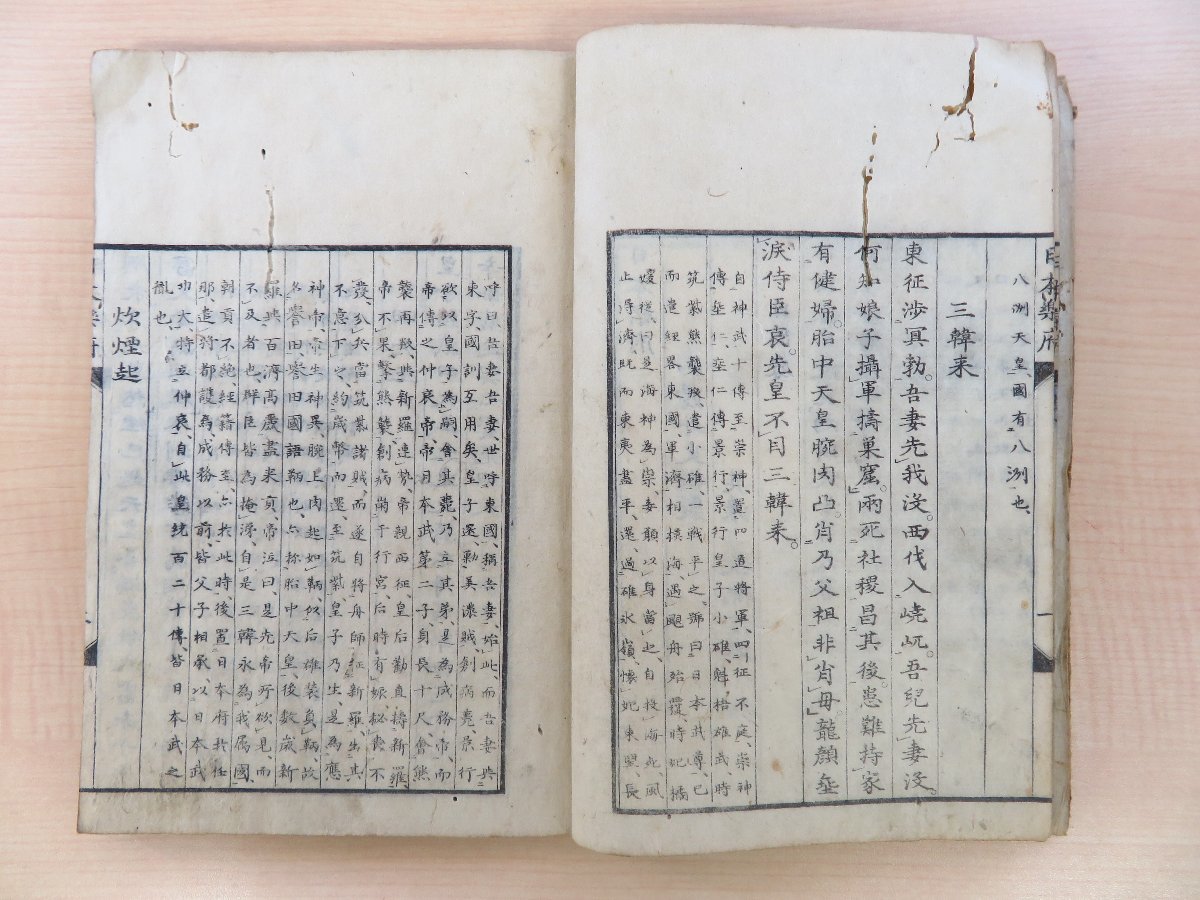 八洲天皇國有八洲也、
三韓来
東征渉冥勃。吾妻先我没。西伐入嶢屼。吾児先妻没。
何知娘子攝軍擣巣窟。兩死社稷昌其後。患難持家
有健婦。胎中天皇腕肉凸。肖乃父祖非肖母。龍顔垂
涙侍臣哀。先皇不目三韓来。
自神武十傳至崇神、置四道將軍、四征不庭、崇神
傳垂仁垂仁傳景行景行皇子小碓、魁梧雄武、時
筑紫熊襲叛、遣小碓、一戦平之、號曰日本武尊、已
而遣經畧東國、軍濟相模海、遇颶舟殆覆、時妃橘
媛從、曰是海神為祟、妾願以身當也、自投海死、風
止得濟、既而東夷盡平、還過碓氷嶺、懷妃東望、長
呼曰、吾妻吾妻、世呼東國、稱吾妻、始此、而吾妻與
東字、國訓互用矣、皇子還、勦美濃賊、創病薨、景行
欲以皇子為嗣、會其薨、乃立其弟、是為成務帝、而
帝傳之仲哀帝、帝日本武第二子、身長十尺、會熊
襲再叛、與新羅連勢、帝親西征、皇后勸直擣新羅
帝不果、撃熊襲、創病崩于行宮、后時有娠、秘喪不
發、分兵當筑紫諸賊、而遂自將舟師征新羅、出其
不意、下之、約歳幣而還、至筑紫、皇子乃生、是為應
神帝、帝生神異、腕上肉起如鞆、似后雄装負鞆、故
名譽田、譽田國語鞆也、亦称胎中天皇、後數歳新
羅與百濟高麗盡来貢、帝泣曰、是先帝所欲見、而
不及者也、群臣皆為掩涕、自是三韓永為我属國
朝貢不絶、經籍傳至亦於此時、後置日本府於任
那、遣狩都護為、成務以前、皆父子相承、以日本武
功大、特立仲哀、自此皇統百二十傳、皆日本武之
胤也、
炊煙起
日本樂府